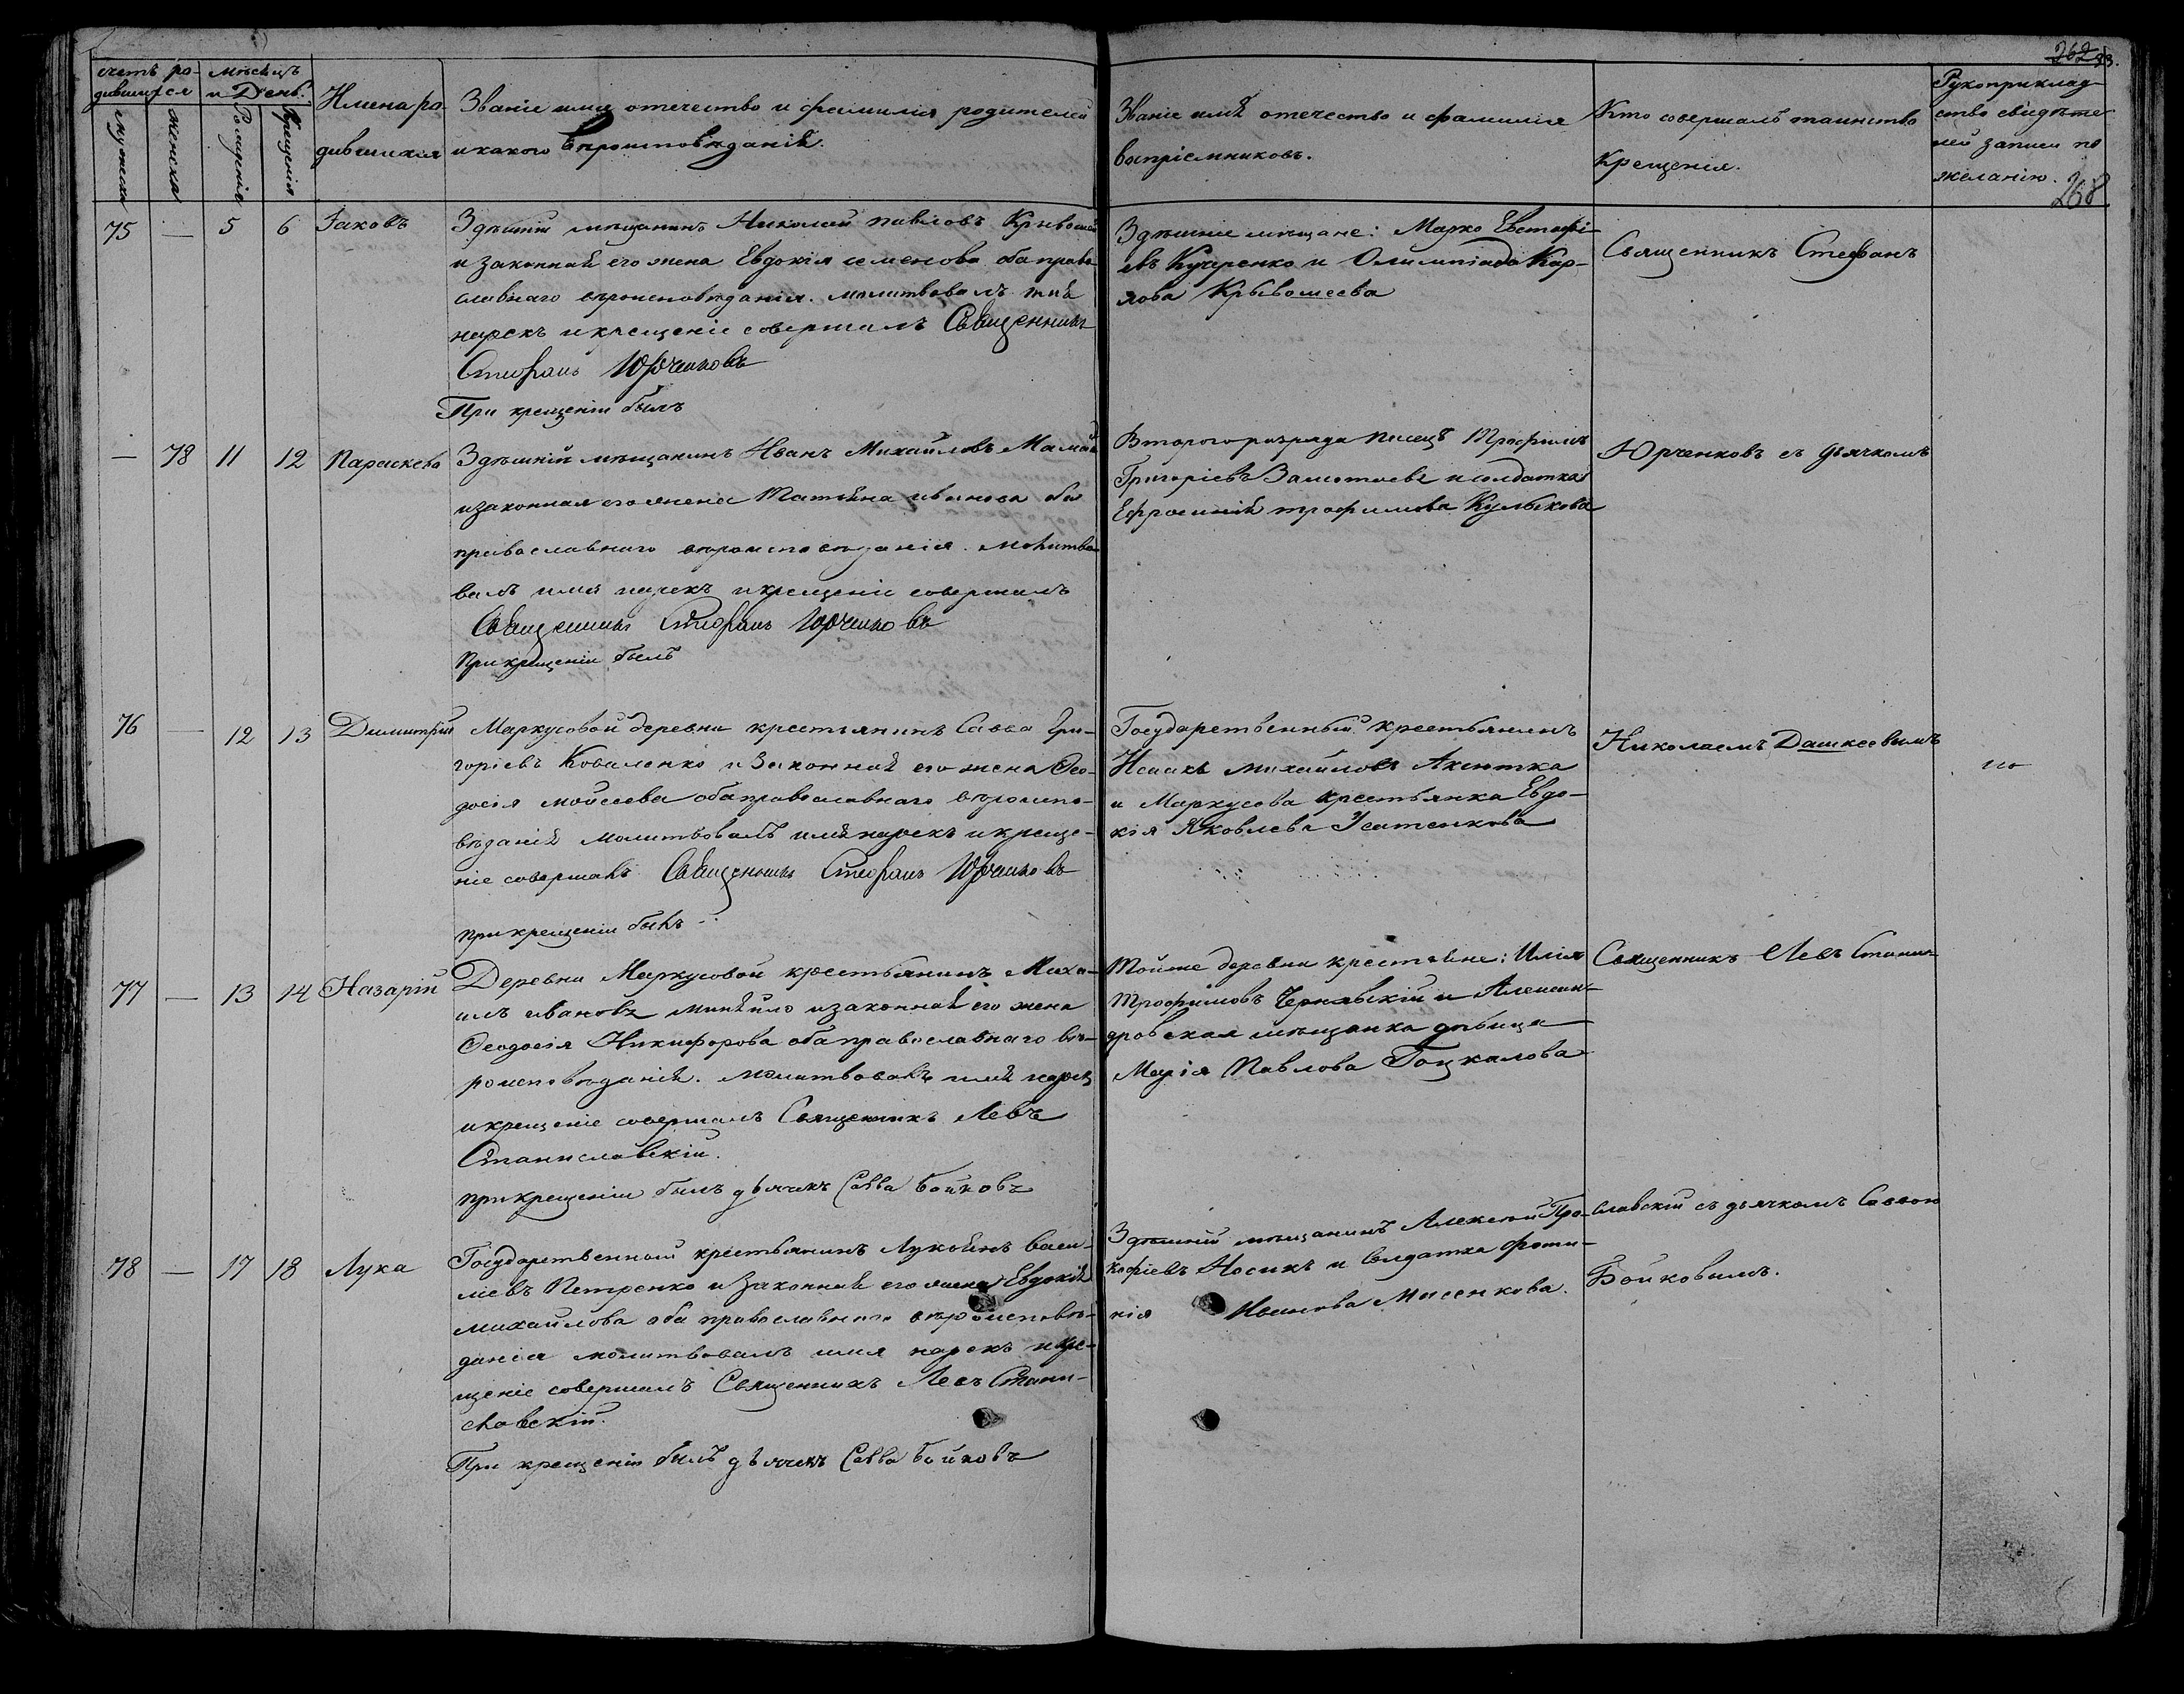 262 93.
счетъ ро-
дившихся
мѣсяцъ
и День.
мужеска
женска
Рожденія
Крещенія
Имена ро-
дившихся
Званіе имя отечество и фамилія родителей
и какого вѣроисповѣданія.
Званіе имя отечество и фамилія
воспріемниковъ.
Кто совершалъ таинство
Крещенія.
Рукоприклад-
ство свидѣте-
лей записи по
желанію.
268
75 — 5 6 Іаковъ
Здѣшній мѣщанинъ Николай павловъ Кривошей
и законная его жена Евдокія семенова оба право-
славнаго вѣроисповѣданія. молитвовалъ имя
нарекъ и крещеніе совершалъ Священникъ
Стефанъ Юрченковъ
При крещеніи былъ
Здѣшніе мѣщане: Марко Евстафі-
евъ Кучеренко и Олимпіада Кар-
пова Крывошеева
Священникъ Стефанъ
— 78 11 12 Параскева
Здѣшній мѣщанинъ Иванъ Михайловъ Мамай
и законная его жена Татьяна иванова оба
православнаго вѣроисповѣданія. молитво-
валъ имя нарекъ и крещеніе совершалъ
Священникъ Стефанъ Юрченковъ
При крещеніи былъ
Второго разряда писецъ Трофимъ
Григоріевъ и солдатка
Ефросинія трофимова Кулыкова
Юрченковъ съ дьячкомъ
76 — 12 13 Димитрій
Маркусовой деревни крестьянинъ Савва Гри-
горіевъ Коваленко и Законная его жена Ѳео-
досія моисеева оба православнаго вѣроиспо-
вѣданія молитвовалъ имя нарекъ и креще-
ніе совершалъ Священникъ Стефанъ Юрченковъ
при крещеніи былъ
Государственный крестьянинъ
Исаакъ михайловъ
и Маркусова крестьянка Евдо-
кія Яковлева Усатенкова
Николаемъ Дашкеевымъ
77 — 13 14 Назарій
Деревни Маркусовой крестьянинъ Миха-
илъ ивановъ и законная его жена
Ѳеодосія Никифорова оба православнаго вѣ-
роисповѣданія. молитвовалъ имя нарекъ
и крещеніе совершалъ Священникъ Левъ
Станиславскій.
при крещеніи былъ дьячекъ Савва Бойковъ
Тойже деревни крестьяне: Илія
Трофимовъ Чернявскій и Алексан-
дровская мѣщанка дѣвица
Марія Павлова Гоцкалова
Священникъ Левъ Стани-
78 — 17 18 Лука
Государственный крестьянинъ Лукіянъ васи-
ліевъ Петренко и Законная его жена Евдокія
михайлова оба православнаго вѣроисповѣ-
данія молитвовалъ имя нарекъ и кре-
щеніе совершалъ Священникъ Левъ Стани-
славскій.
При крещеніи былъ дьячекъ Савва Бойковъ
Здѣшній мѣщанинъ Алексей Про-
кофіевъ Носикъ и солдатка Фоти-
нія Иванова Мисенкова.
славскій съ дьячкомъ Саввою
Бойковымъ.